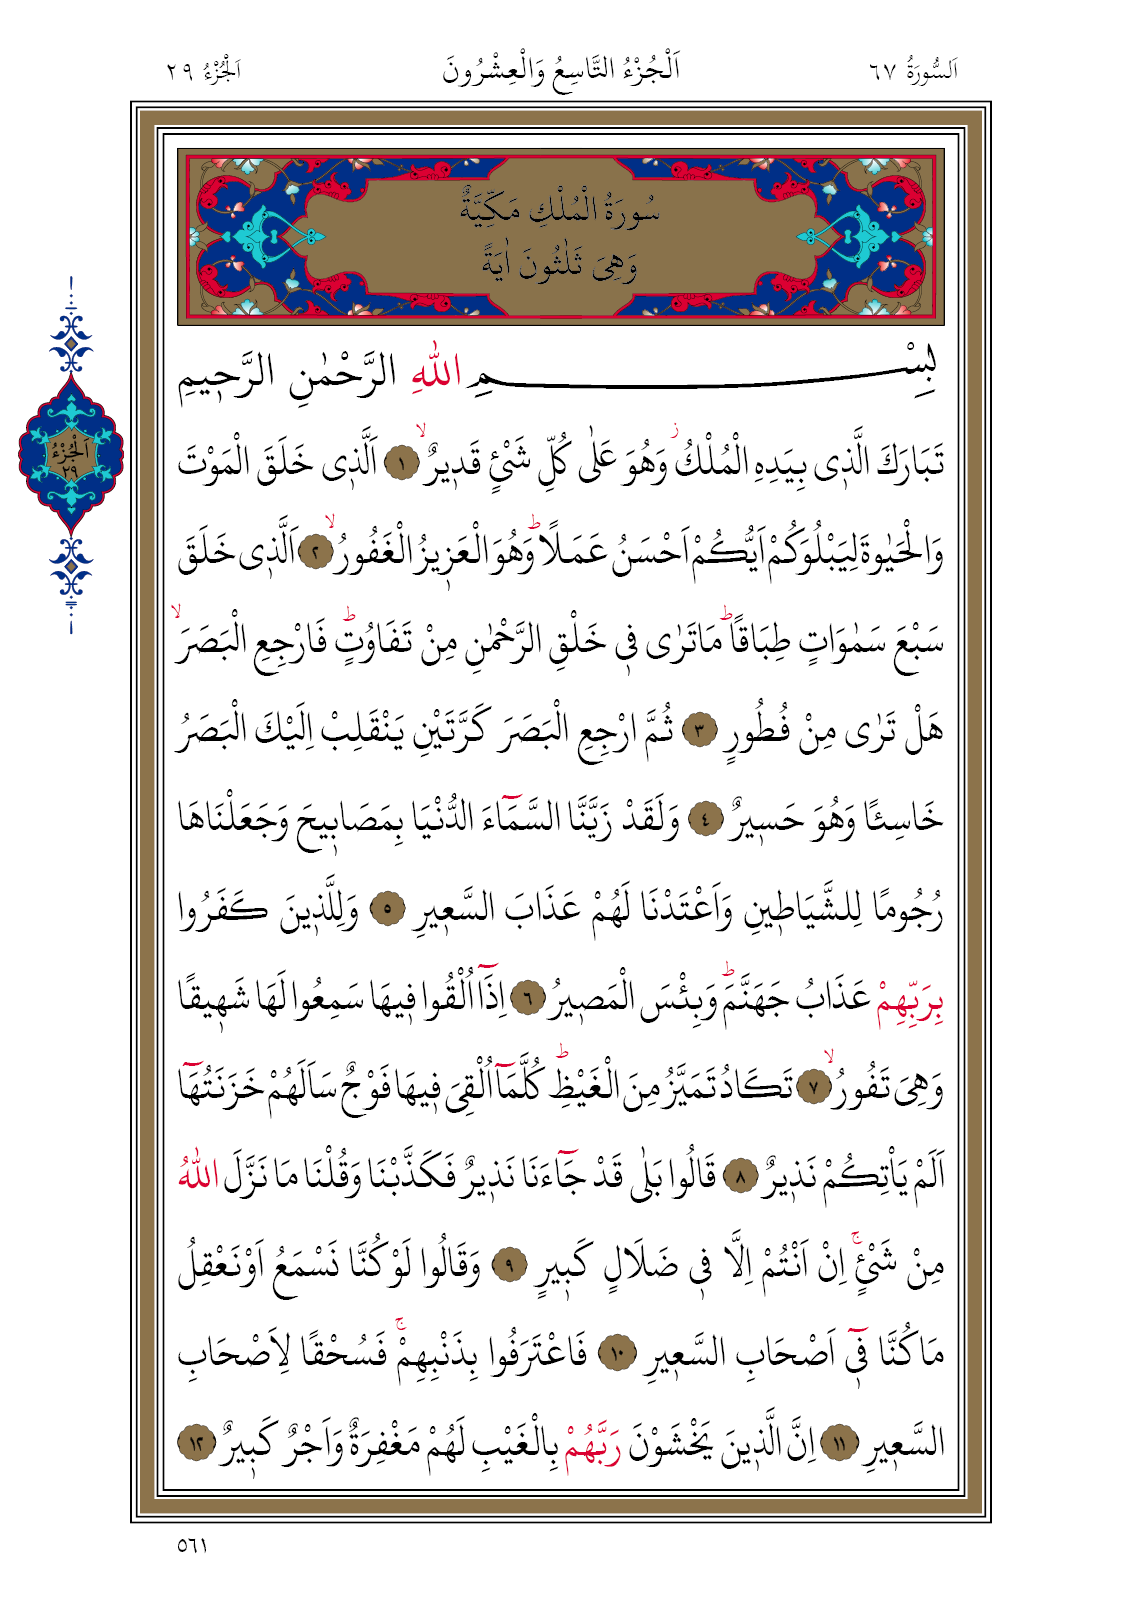 اَلسُّورَةُ ٦٧ اَلْجُزْءُ التَّاسِعُ وَالْعِشْرُونَ اَلْجُزْءُ ٢٩
سُورَةُ الْمُلْكِ مَكِّيَّةٌ
وَهِىَ ثَلٰثُونَ اٰيَةً
بِسْمِ اللّٰهِ الرَّحْمٰنِ الرَّح۪يمِ
اَلْجُزْءُ
٢٩
تَبَارَكَ الَّذ۪ى بِيَدِهِ الْمُلْكُۘ وَهُوَ عَلٰى كُلِّ شَىْءٍ قَد۪يرٌۙ ﴿١﴾ اَلَّذ۪ى خَلَقَ الْمَوْتَ
وَالْحَيٰوةَ لِيَبْلُوَكُمْ اَيُّكُمْ اَحْسَنُ عَمَلًاۜ وَهُوَ الْعَز۪يزُ الْغَفُورُۙ ﴿٢﴾ اَلَّذ۪ى خَلَقَ
سَبْعَ سَمٰوَاتٍ طِبَاقًاۜ مَا تَرٰى ف۪ى خَلْقِ الرَّحْمٰنِ مِنْ تَفَاوُتٍۜ فَارْجِعِ الْبَصَرَۙ
هَلْ تَرٰى مِنْ فُطُورٍ ﴿٣﴾ ثُمَّ ارْجِعِ الْبَصَرَ كَرَّتَيْنِ يَنْقَلِبْ اِلَيْكَ الْبَصَرُ
خَاسِئًا وَهُوَ حَس۪يرٌ ﴿٤﴾ وَلَقَدْ زَيَّنَّا السَّمَٓاءَ الدُّنْيَا بِمَصَاب۪يحَ وَجَعَلْنَاهَا
رُجُومًا لِلشَّيَاط۪ينِ وَاَعْتَدْنَا لَهُمْ عَذَابَ السَّع۪يرِ ﴿٥﴾ وَلِلَّذ۪ينَ كَفَرُوا
بِرَبِّهِمْ عَذَابُ جَهَنَّمَۜ وَبِئْسَ الْمَص۪يرُ ﴿٦﴾ اِذَٓا اُلْقُوا ف۪يهَا سَمِعُوا لَهَا شَه۪يقًا
وَهِىَ تَفُورُۙ ﴿٧﴾ تَكَادُ تَمَيَّزُ مِنَ الْغَيْظِۜ كُلَّمَٓا اُلْقِىَ ف۪يهَا فَوْجٌ سَاَلَهُمْ خَزَنَتُهَٓا
اَلَمْ يَاْتِكُمْ نَذ۪يرٌ ﴿٨﴾ قَالُوا بَلٰى قَدْ جَٓاءَنَا نَذ۪يرٌ فَكَذَّبْنَا وَقُلْنَا مَا نَزَّلَ اللّٰهُ
مِنْ شَىْءٍۚ اِنْ اَنْتُمْ اِلَّا ف۪ى ضَلَالٍ كَب۪يرٍ ﴿٩﴾ وَقَالُوا لَوْ كُنَّا نَسْمَعُ اَوْ نَعْقِلُ
مَا كُنَّا ف۪ٓى اَصْحَابِ السَّع۪يرِ ﴿١٠﴾ فَاعْتَرَفُوا بِذَنْبِهِمْۚ فَسُحْقًا لِاَصْحَابِ
السَّع۪يرِ ﴿١١﴾ اِنَّ الَّذ۪ينَ يَخْشَوْنَ رَبَّهُمْ بِالْغَيْبِ لَهُمْ مَغْفِرَةٌ وَاَجْرٌ كَب۪يرٌ ﴿١٢﴾
٥٦١